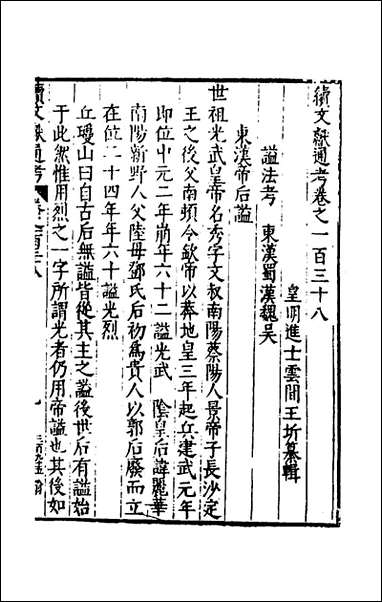 續文獻通考卷之一百三十八
皇明進士雲間王圻纂輯
諡法考　東漢蜀漢魏吳
東漢帝后諡
世祖光武皇帝名秀字文叔南陽蔡陽人景帝子長沙定
王之後父南頓令欽帝以莽地皇三年起兵建武元年
即位中元二年崩年六十二諡光武　陰皇后諱麗華
南陽新野人父陸母鄧氏后初為貴人以郭后廢而立
在位二十四年年六十諡光烈
丘瓊山曰自古后無諡皆從其主之諡後世后有諡始
于此然惟用烈之一字所謂光者仍用帝諡也其後如
續文獻通考
一